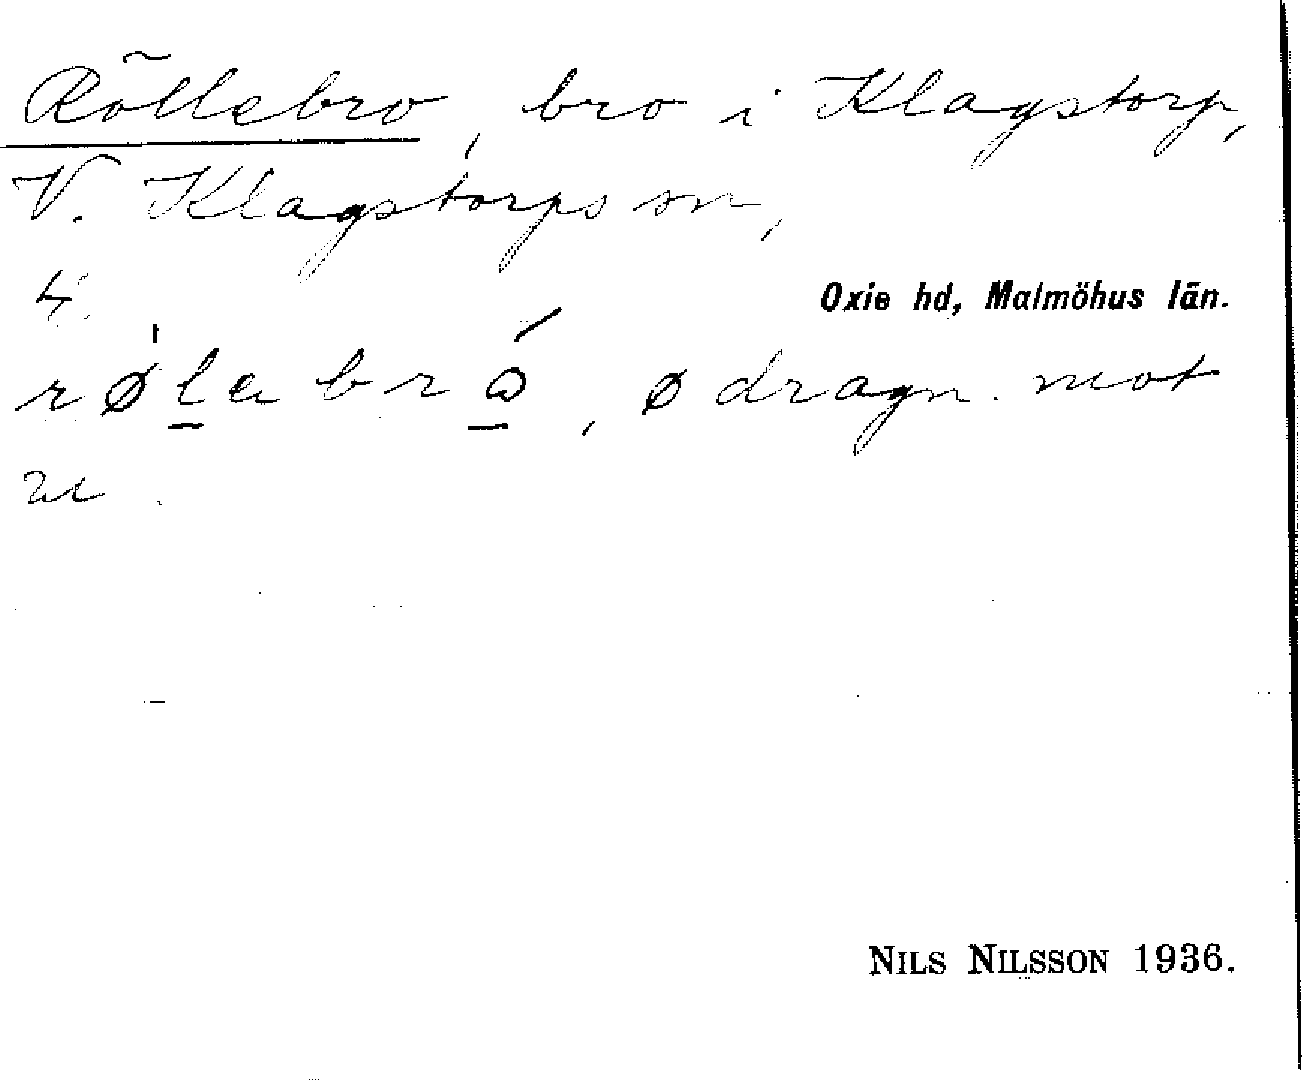 Röllebro, bro i Klagstorp,
V. Klagstorps sn,
4.
Oxie hd, Malmöhus län.
rø̍l̠a brá̠, ø dragn. mot
u.
NILS NILSSON 1936.